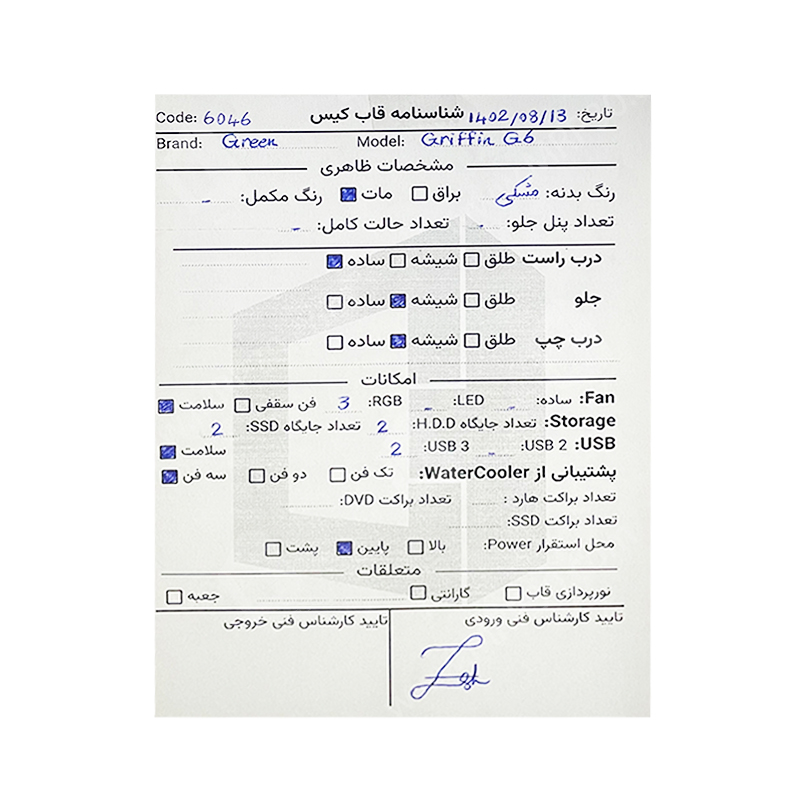 تاریخ: 1402/08/13 شناسنامه قاب کیس Code: 6046
Brand: Green Model: Griffin G6
مشخصات ظاهری
رنگ بدنه: مشکی براق مات رنگ مکمل: -
تعداد پنل جلو: - تعداد حالت کامل: -
درب راست طلق شیشه ساده
جلو طلق شیشه ساده
درب چپ طلق شیشه ساده
امکانات
Fan: ساده: - LED: - RGB: 3 فن سقفی سلامت
Storage: تعداد جایگاه H.D.D: 2 تعداد جایگاه SSD: 2
USB: USB 2: - USB 3: 2 سلامت
پشتیبانی از WaterCooler: تک فن دو فن سه فن
تعداد براکت هارد : تعداد براکت DVD:
تعداد براکت SSD:
محل استقرار Power: بالا پایین پشت
متعلقات
نورپردازی قاب گارانتی جعبه
تایید کارشناس فنی ورودی تایید کارشناس فنی خروجی